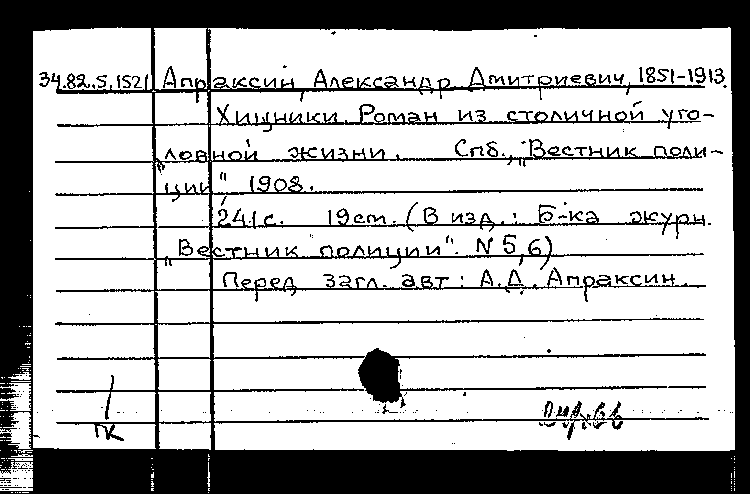 34.82.5.1521 Апраксин, Александр Дмитриевич, 1851-1913.
Хищники. Роман из столичной уго-
ловной жизни. Спб., „Вестник поли-
ции", 1908.
241с. 19cm. (В изд.: Б-ка журн.
„Вестник полиции". N 5,6)
Перед загл. авт: А.Д. Апраксин.
ПК